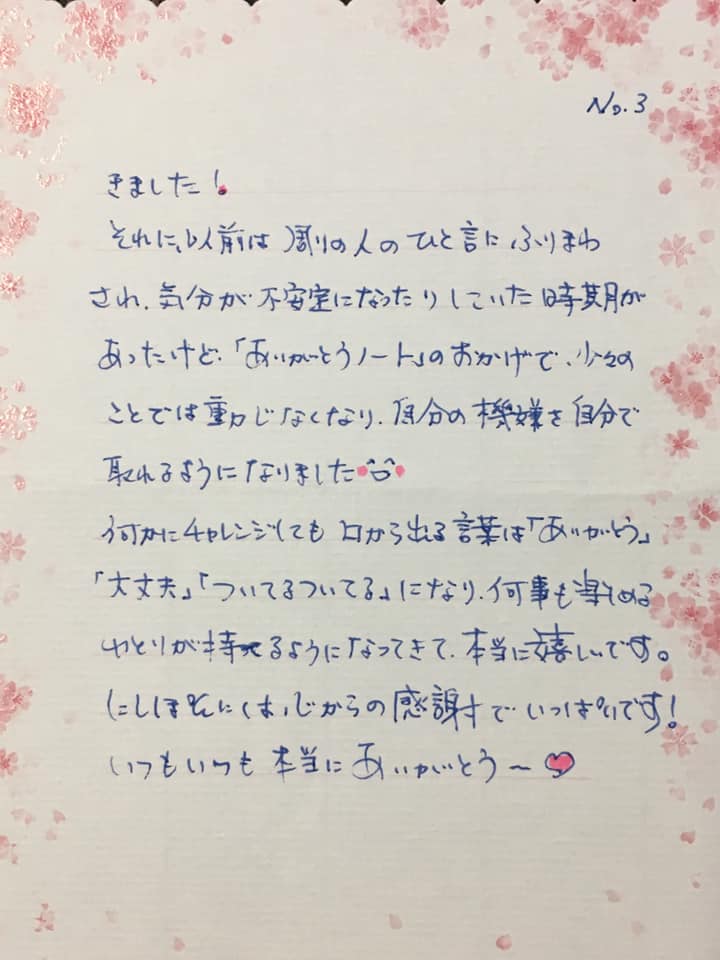 No.3
きました!
それに、以前は周りの人のひと言にふりまわ
され、気分が不安定になったりしていた時期が
あったけど、「ありがとうノート」のおかげで、少々の
ことでは動じなくなり、自分の機嫌を自分で
取れるようになりました^^
何かにチャレンジしても口から出る言葉は「ありがとう」
「大丈夫」「ついてるついてる」になり、何事も楽しめる
ゆとりが持てるようになってきて、本当に嬉しいです。
には心からの感謝でいっぱいです!
いつもいつも本当にありがとう〜♡